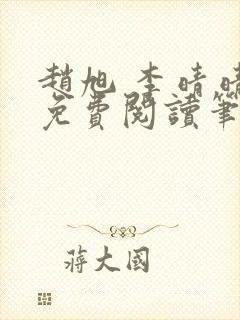 趙旭 李晴晴
免費閱讀筆
蔣大國